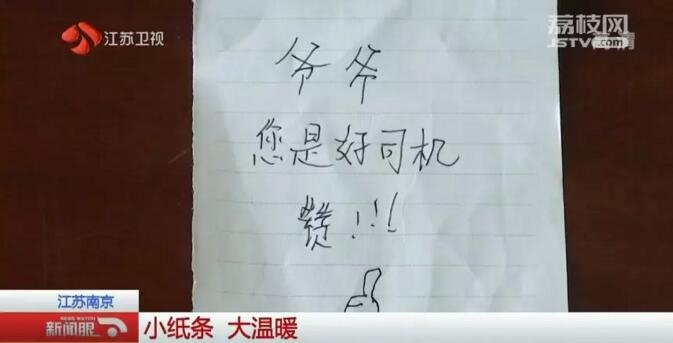 江苏卫视
荔枝网
JSTV.com
爷爷
您是好司机
赞!!!
江苏南京
NEWS WATCH
新闻眼
小纸条 大温暖